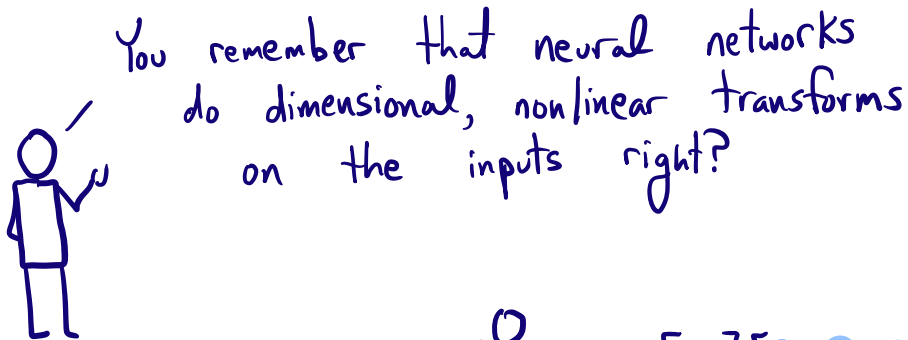 You remember that neural networks
do dimensional, nonlinear transforms
on the inputs right?